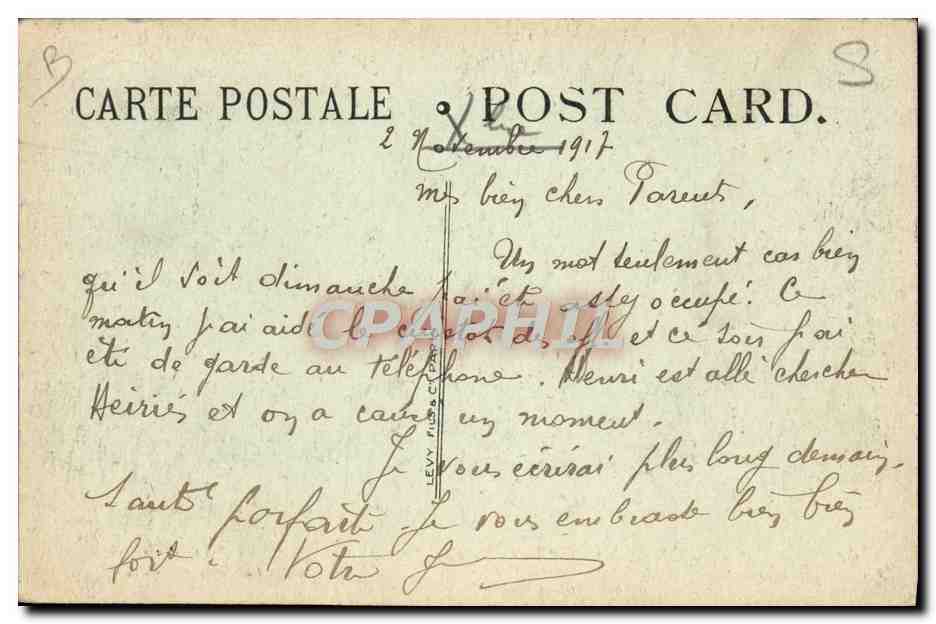 B
S
CARTE POSTALE • POST CARD.
2 Novembre 1917
Mes bien chers Parents,
Un mot seulement car bien
qu'il soit dimanche j'ai été assez occupé. Ce
matin j'ai aidé le cuistot des off et ce soir j'ai
été de garde au téléphone. Henri est allé chercher
et on a causé un moment.
Je vous écrirai plus long demain.
Santé parfaite. Je vous embrasse bien bien
fort. Votre
LEVY FILS & Cie PARIS
CPAPHIL